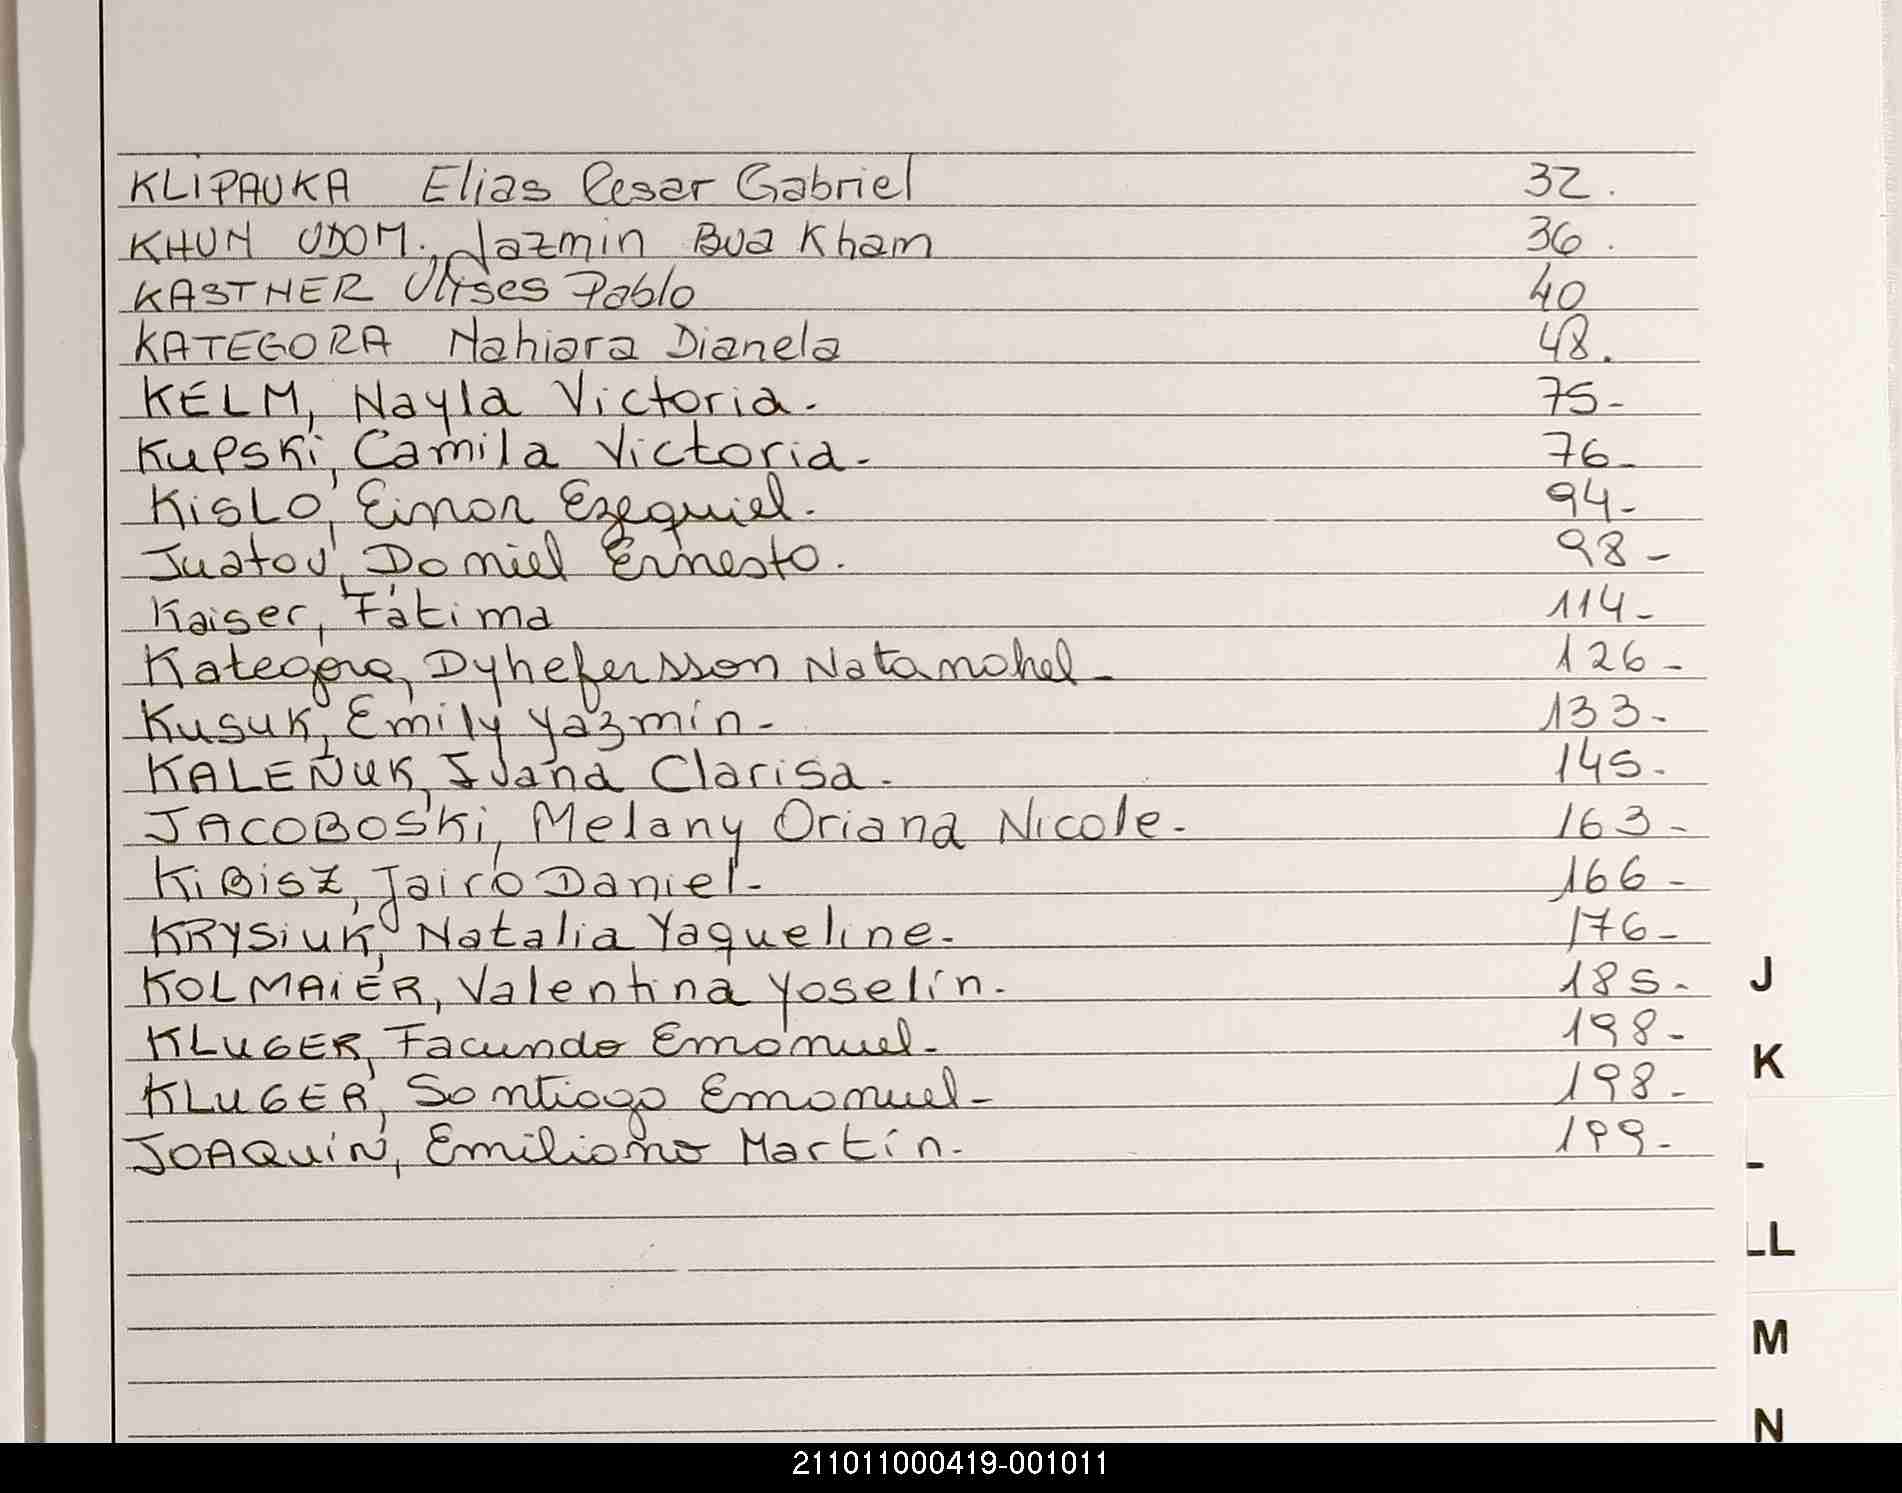 KLIPAUKA Elias Cesar Gabriel 32.
KHUN UDOM, Jazmin Bua Kham 36.
KASTNER Ulises Pablo 40
KATEGORA Nahiara Dianela 48.
KELM, Nayla Victoria. 75-
Kupski, Camila Victoria. 76-
KisLO, Einor Ezequiel. 94-
Juatou, Daniel Ernesto. 98-
Kaiser, Fátima 114-
Kategora, Dyhefersson Natanahel- 126-
Kusuk, Emily Yazmín- 133-
KALEÑUK, Ivana Clarisa. 145-
JACOBOSKi, Melany Oriana Nicole- 163-
KiBisZ, Jairo Daniel- 166-
KRYSiuK, Natalia Yaqueline- 176-
KOLMAiER, Valentina Yoselín. 185-
KLUGER, Facundo Emanuel- 198-
KLUGER, Santiago Emanuel- 198-
JOAQUíN, Emiliano Martín. 199-
J
K
LL
M
N
211011000419-001011